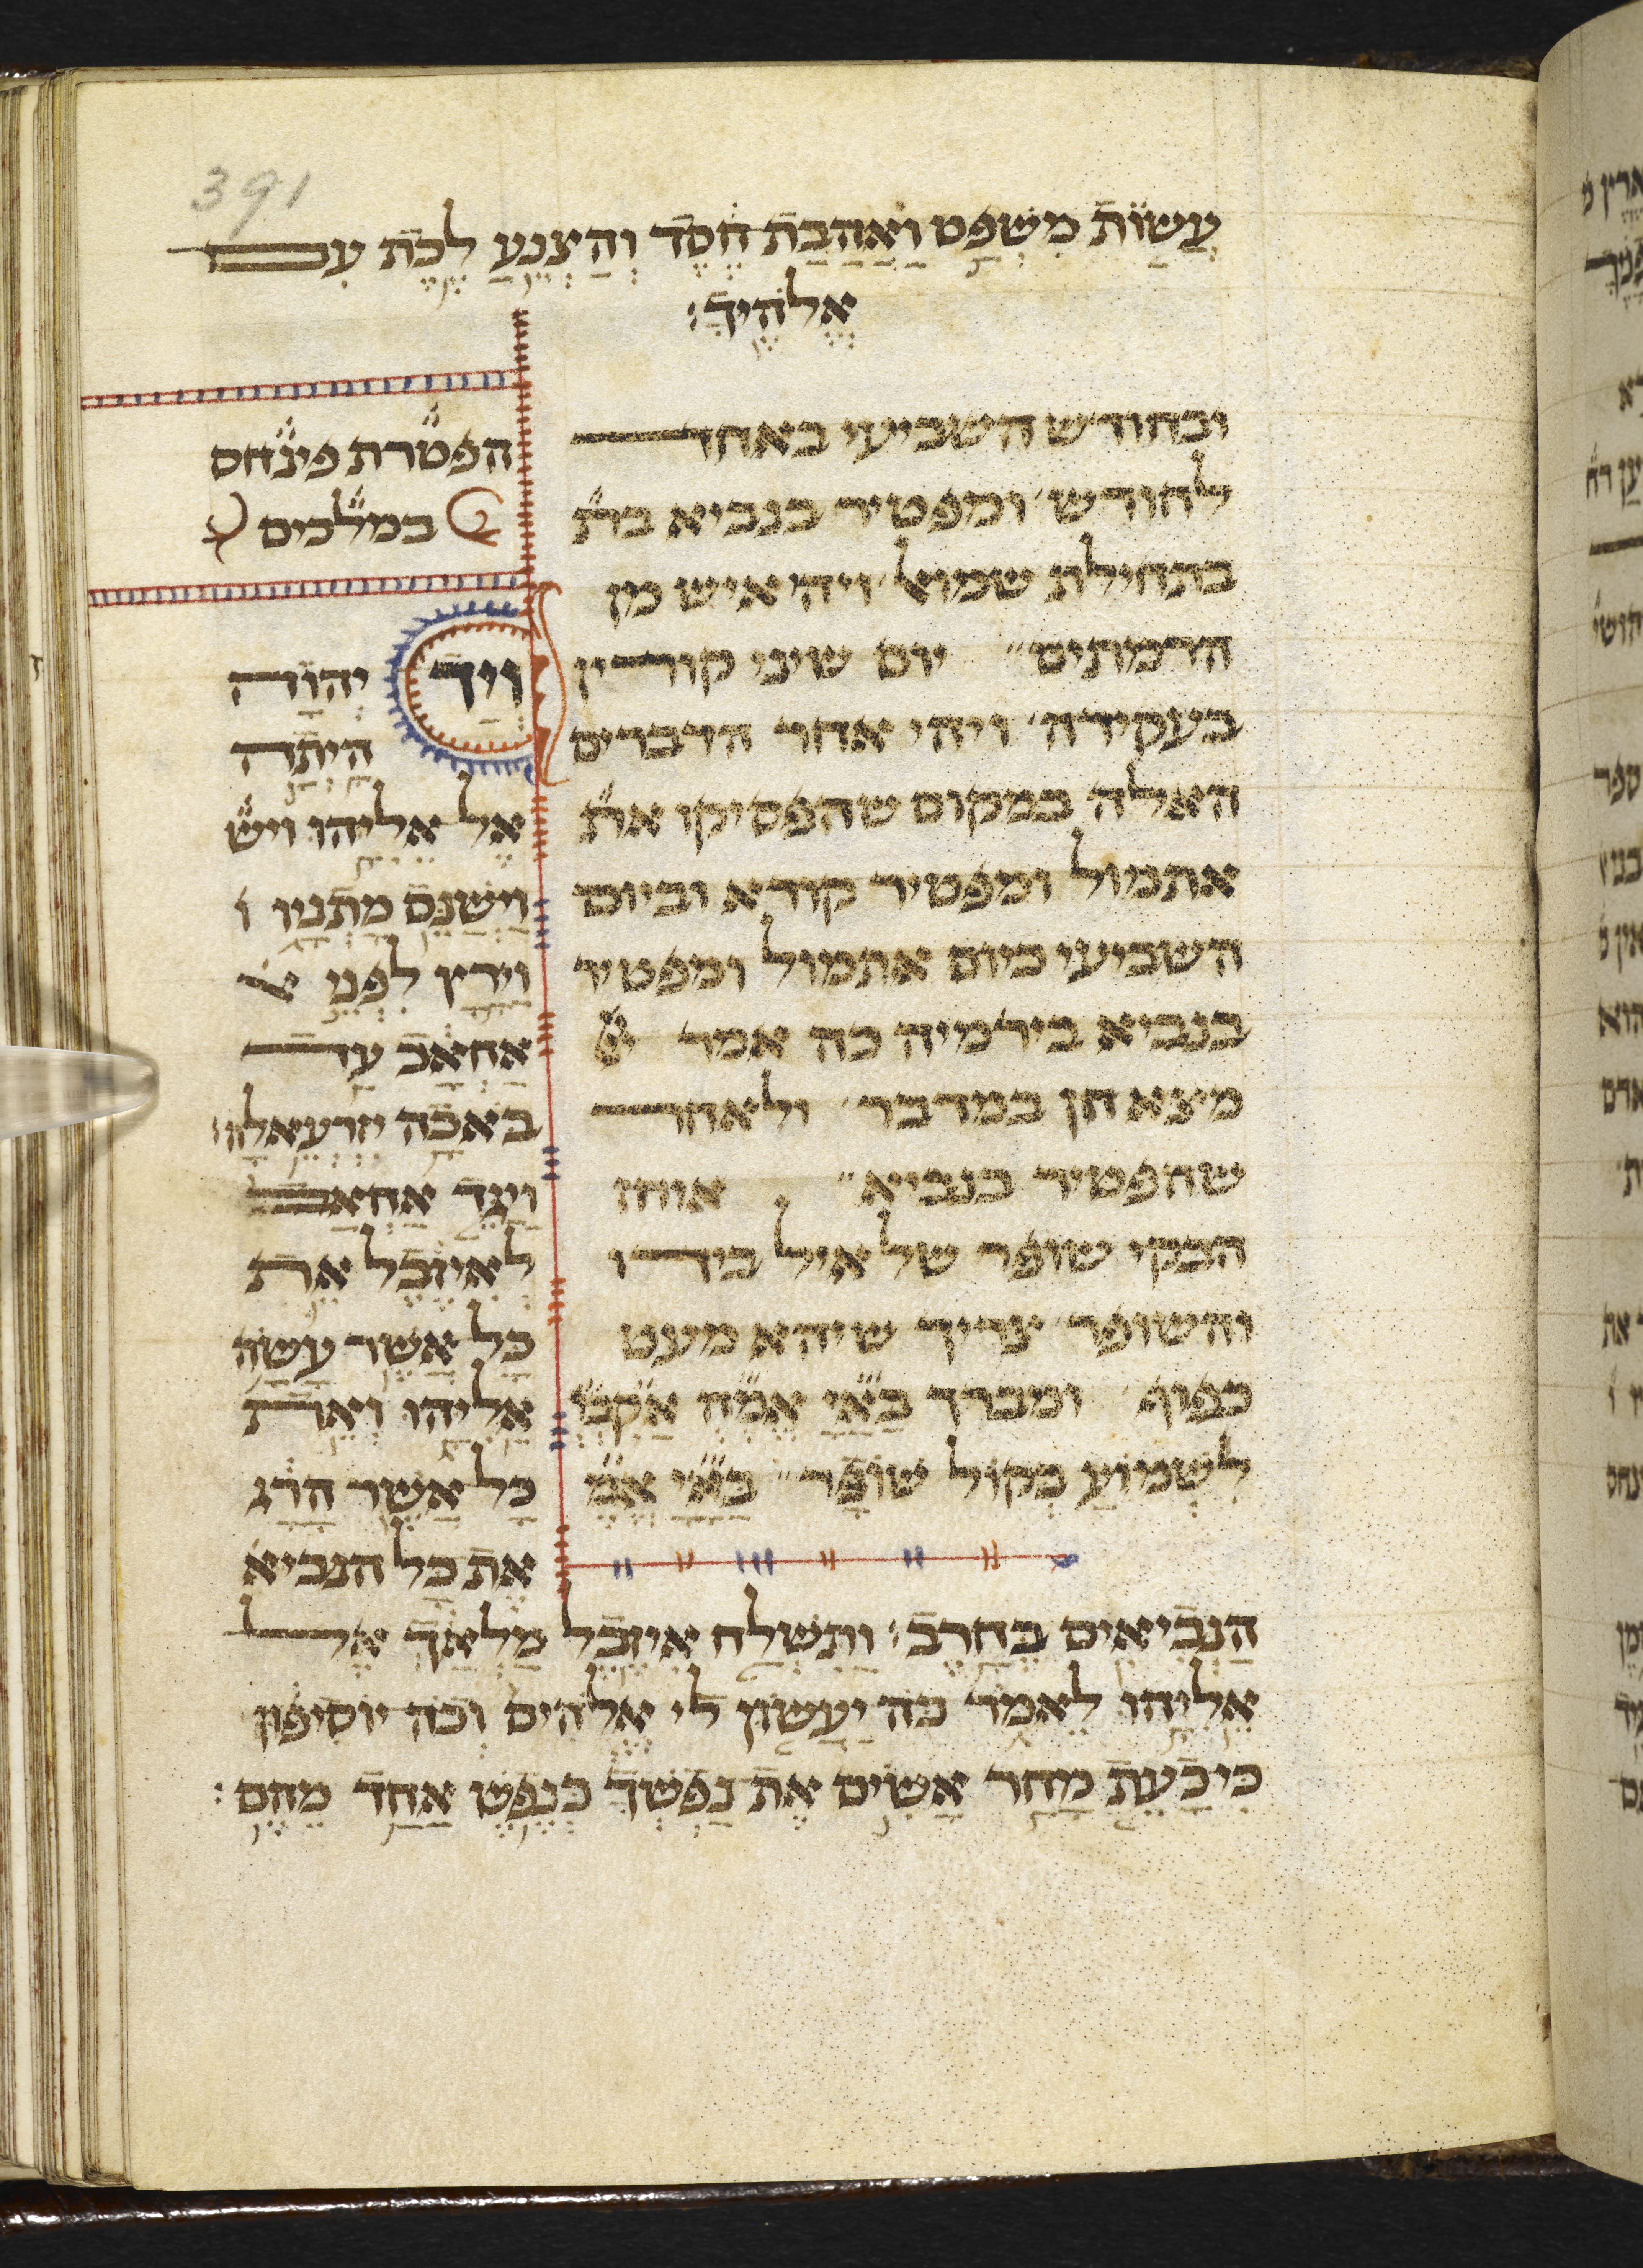 391
עשות משפט ואהבת חסד והצנע לכת עם
אלהיך׃
ובחודש השביעי באחד
לחודש ומפטיר בנביא בת״
בתחילת שמואל ויהי איש מן
הרמתים״ יום שיני קורין
בעקידה ויהי אחר הדברים
האלה במקום שהפסיקו את״
אתמול ומפטיר קורא וביום
השביעי כיום אתמול ומפטיר
בנביא בירמיה כה אמר
מצא חן במדבר ולאחר
שהפטיר בנביא״ אוחז
הבקי שופר של איל בידו
והשופר צריך שיהא מעט
כפוף ומברך בא״י אמ״ה אקב״ו
לשמוע בקול שופר״ בא״י אמ״
הפטרת פינחס
במלכים
ויד יהוה
היתה
אל אליהו ויש״
וישנס מתניו ו
וירץ לפני א
אחאב עד
באכה יזרעאלה׃
ויגד אחאב
לאיזבל את
כל אשר עשה
אליהו ואת
כל אשר הרג
את כל הנביא
הנביאים בחרב׃ ותשלח איזבל מלאך אל
אליהו לאמר כה יעשון לי אלהים וכה יוסיפון
כי כעת מחר אשים את נפשך כנפש אחד מהם׃